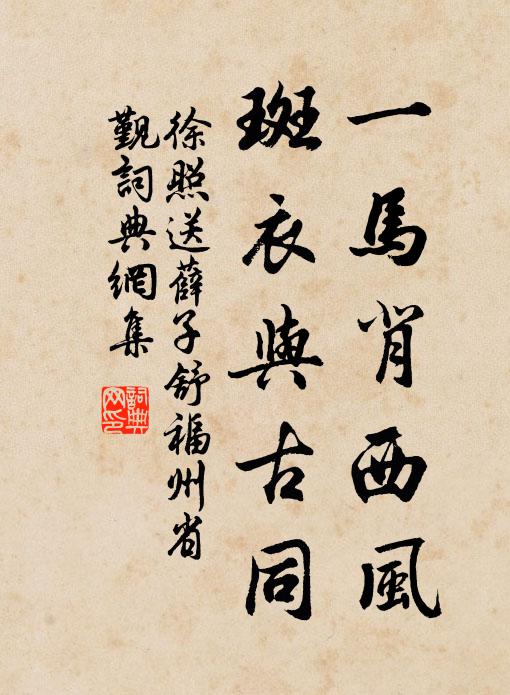 一馬背西風
斑衣與古同
徐照送薛子舒福州省
覲詞典網集
詞典
网印